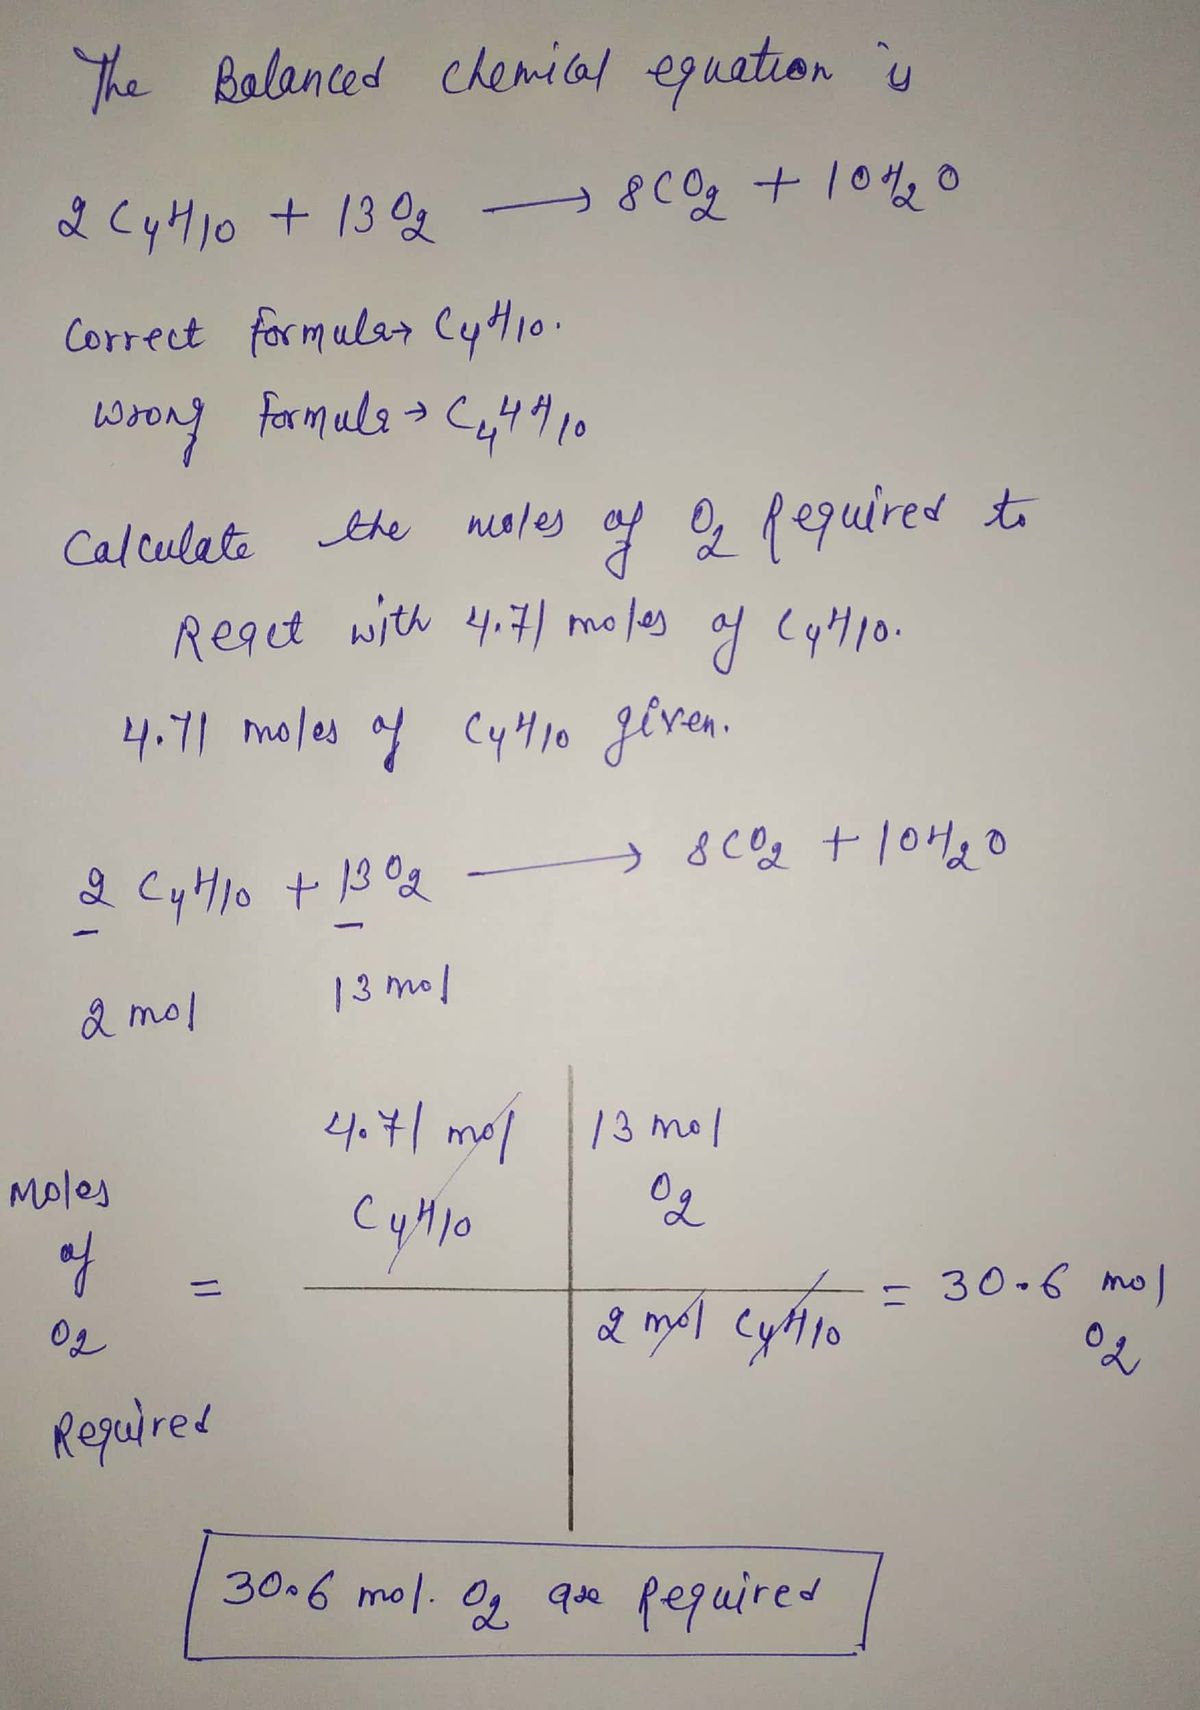 The Balanced chemical equation is
2 C4H10 + 13 O2 → 8CO2 + 10H2O
Correct formula → C4H10.
wrong formula → C44H10
Calculate the moles of O2 Required to
React with 4.71 moles of C4H10.
4.71 moles of C4H10 given.
2 C4H10 + 13 O2 → 8CO2 + 10H2O
2 mol 13 mol
4.71 mol 13 mol
Moles
C4H10 O2
of
= = 30.6 mol
2 mol C4H10
O2 O2
Required
30.6 mol. O2 are Required